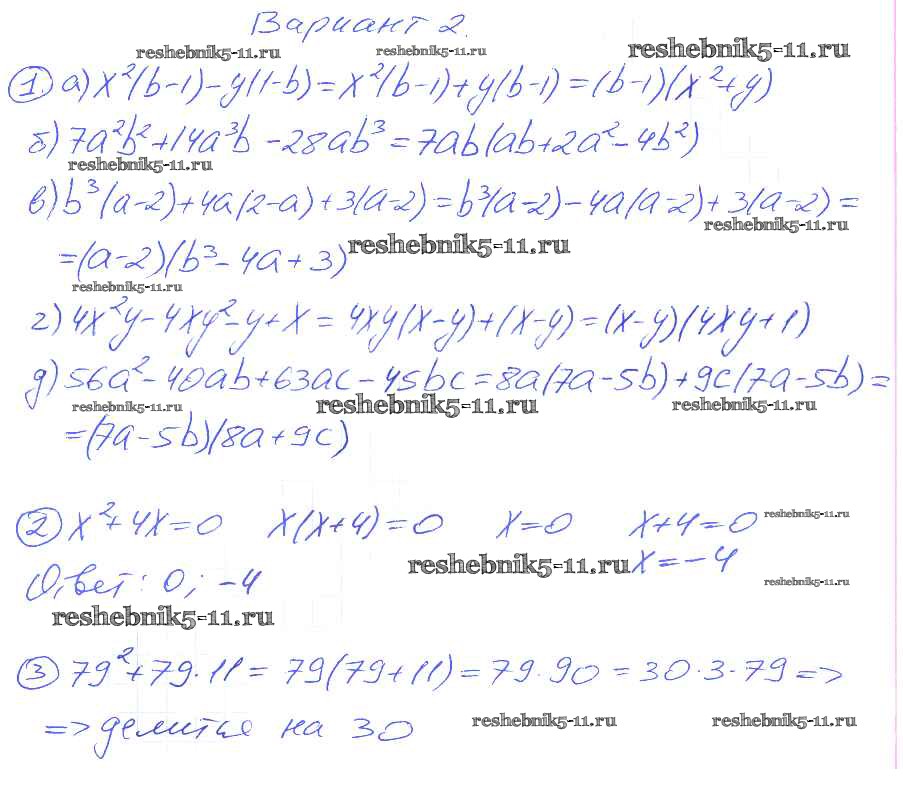 Вариант 2.
reshebnik5-11.ru reshebnik5-11.ru reshebnik5-11.ru
① а) x²(b-1)-y(1-b)=x²(b-1)+y(b-1)=(b-1)(x²+y)
б) 7a²b²+14a³b-28ab³=7ab(ab+2a²-4b²)
reshebnik5-11.ru
в) b³(a-2)+4a(2-a)+3(a-2)=b³(a-2)-4a(a-2)+3(a-2)=
reshebnik5-11.ru
=(a-2)(b³-4a+3) reshebnik5-11.ru
reshebnik5-11.ru
г) 4x²y-4xy²-y+x=4xy(x-y)+(x-y)=(x-y)(4xy+1)
д) 56a²-40ab+63ac-45bc=8a(7a-5b)+9c(7a-5b)=
reshebnik5-11.ru reshebnik5-11.ru reshebnik5-11.ru
=(7a-5b)(8a+9c)
② x²+4x=0 x(x+4)=0 x=0 x+4=0 reshebnik5-11.ru
reshebnik5-11.ru x=-4
Ответ: 0; -4 reshebnik5-11.ru
reshebnik5-11.ru
③ 79²+79·11=79(79+11)=79·90=30·3·79=>
=> делится на 30 reshebnik5-11.ru reshebnik5-11.ru